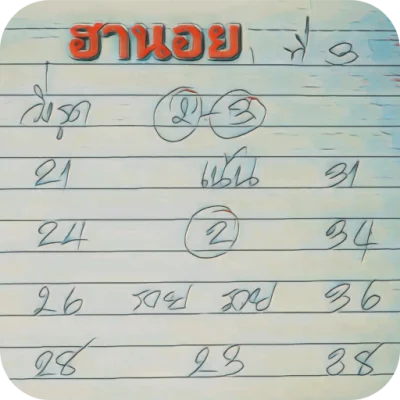 ฮานอย ที่ 3
วิ่งรูด 2-3
21 เน้น 31
24 2 34
26 รวย รวย 36
28 23 38